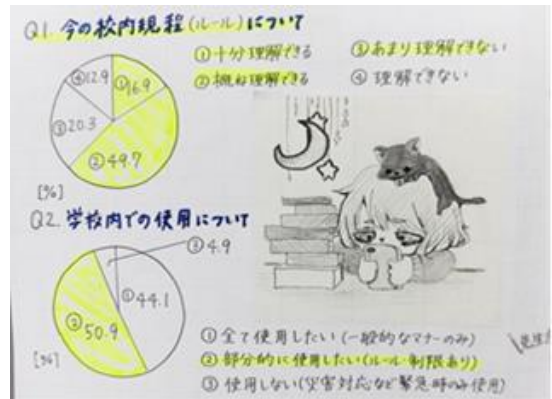 Q1. 今の校内規程(ルール)について
①十分理解できる ③あまり理解できない
②概ね理解できる ④理解できない
④12.9
①16.9
③20.3
②49.7
[%]
Q2. 学校内での使用について
③4.9
①44.1
②50.9
[%]
①全て使用したい(一般的なマナーのみ)
②部分的に使用したい(ルール・制限あり)
③使用しない(災害対応など緊急時のみ使用)